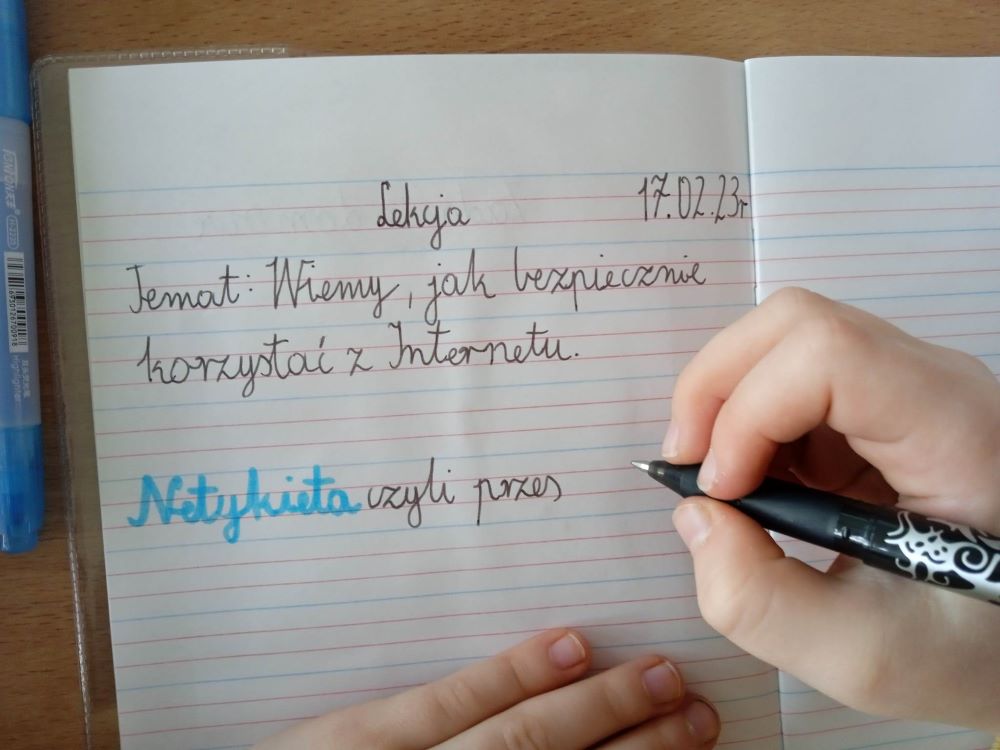 Lekcja 17.02.23r
Temat: Wiemy, jak bezpiecznie
korzystać z Internetu.
Netykieta czyli przes
Highlighter
6950126700918